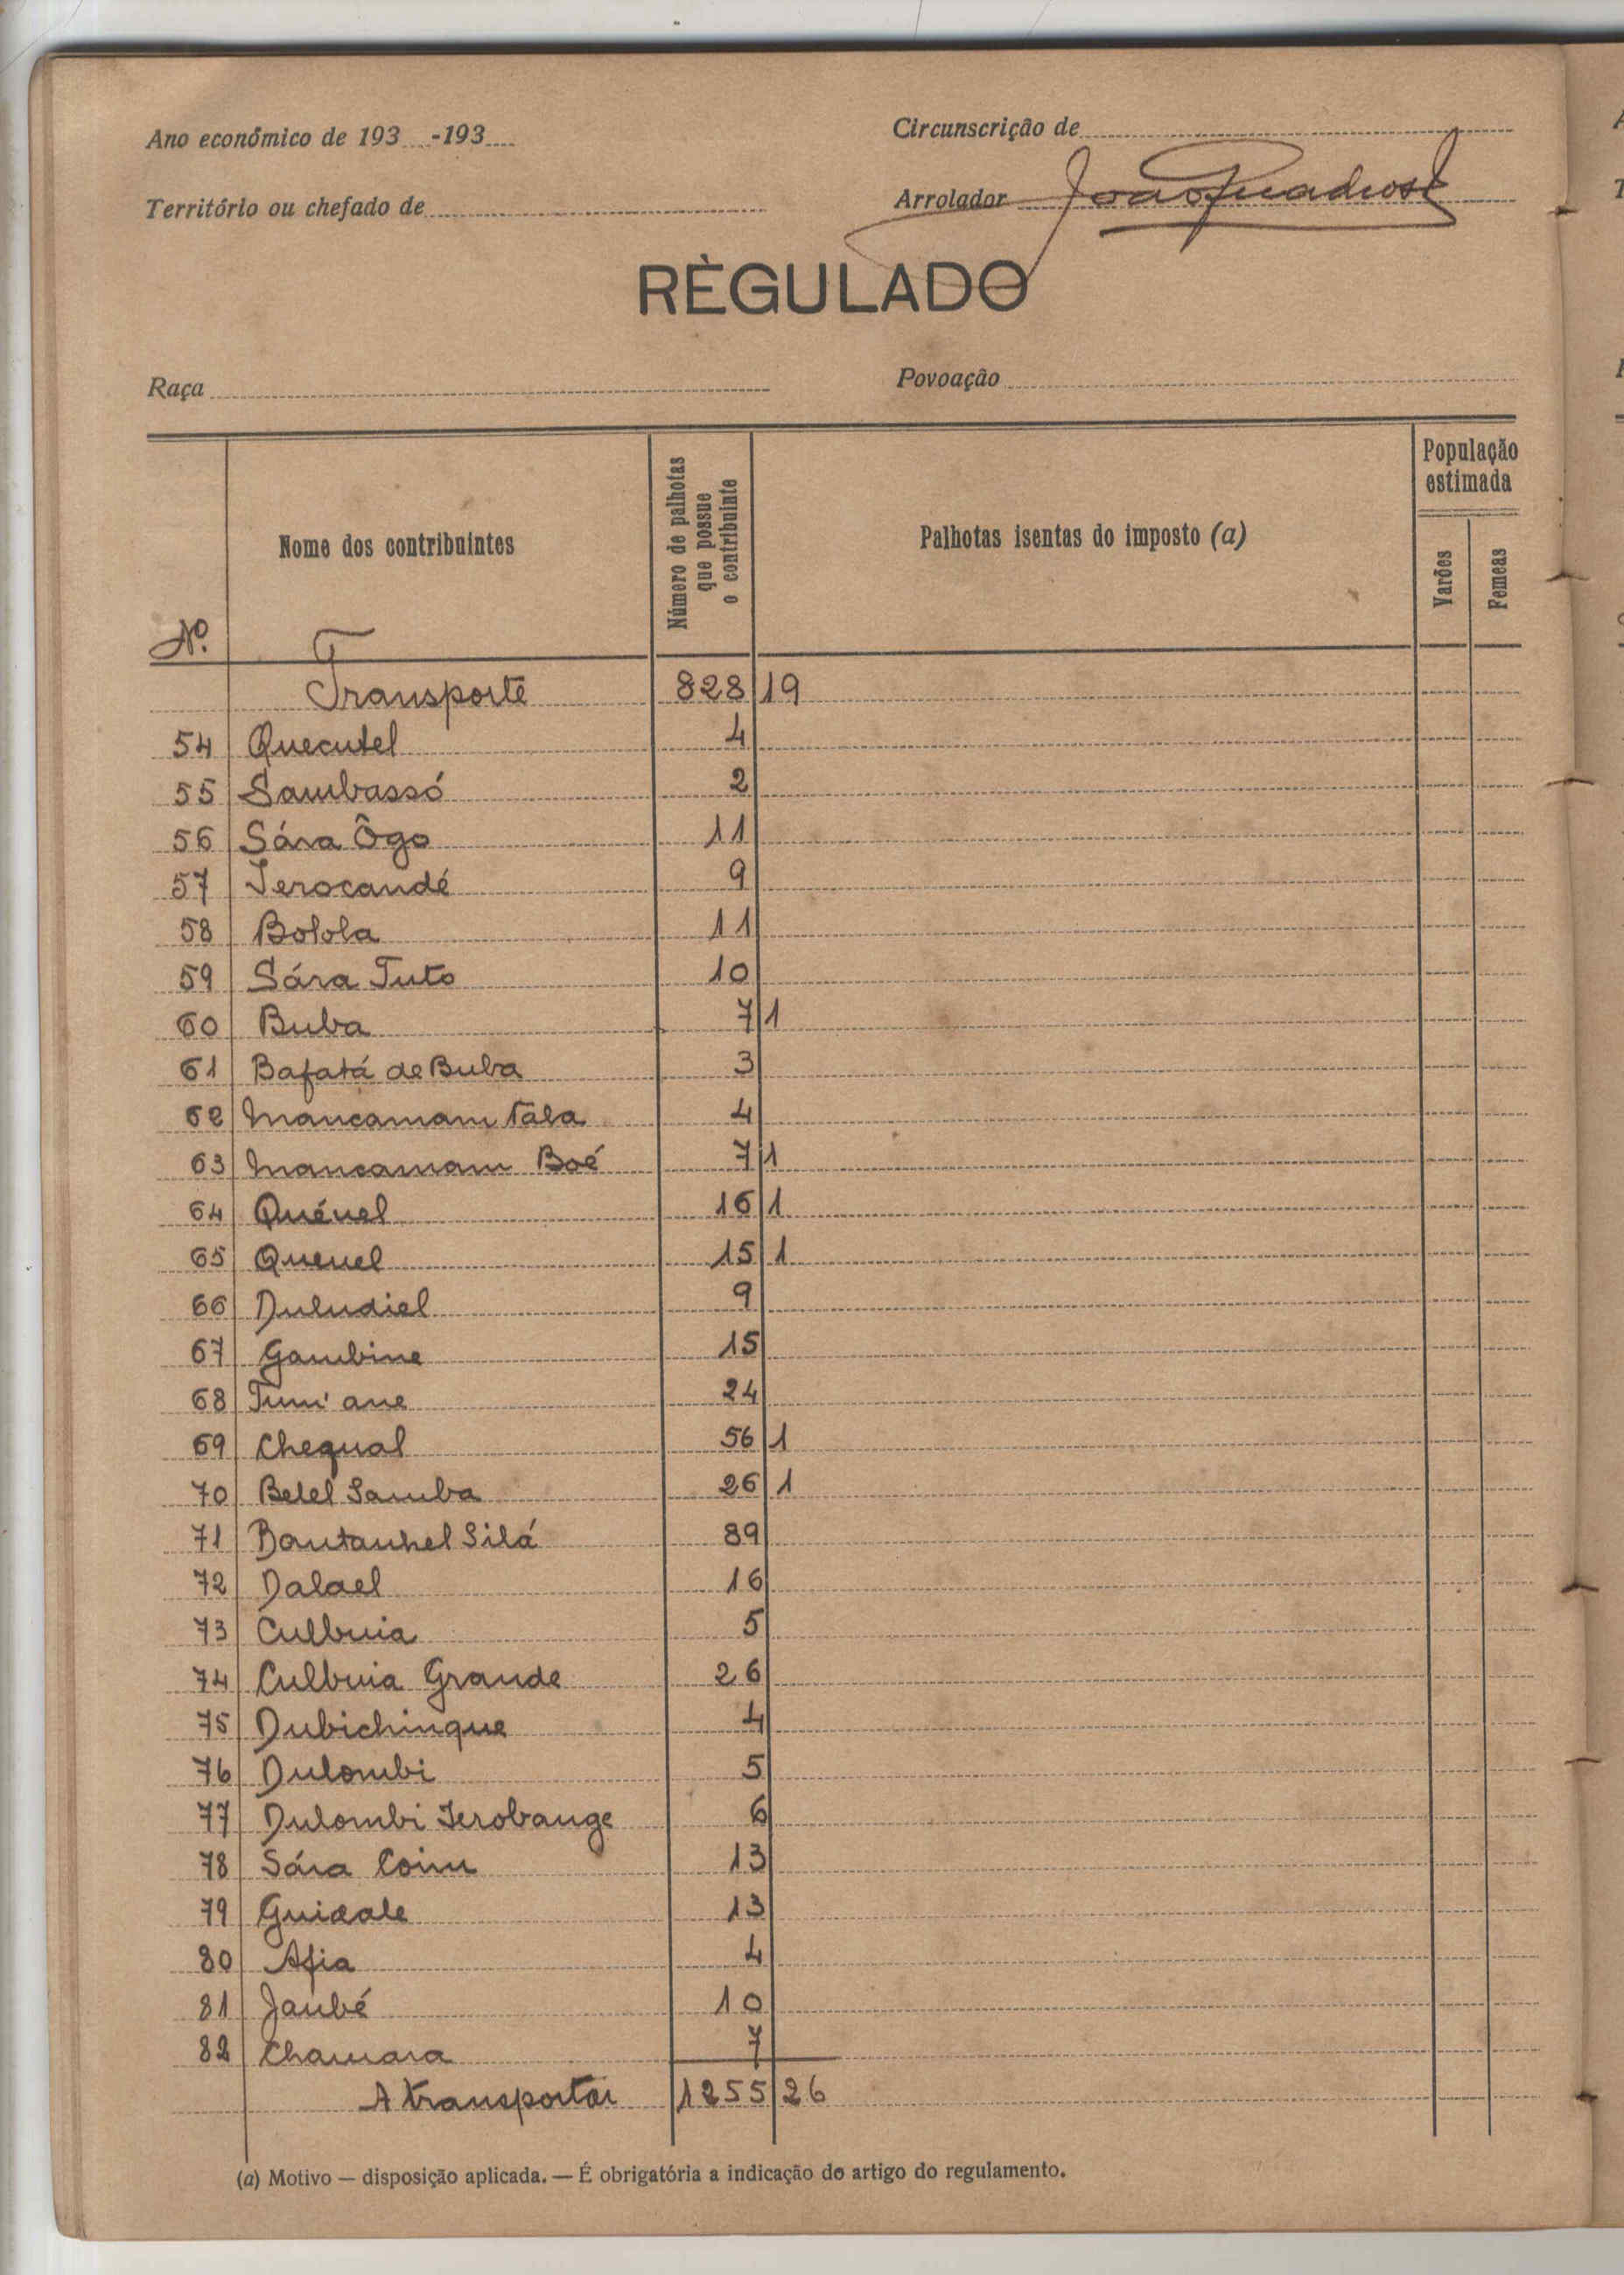 Ano económico de 193....-193....
Circunscrição de
Território ou chefado de
Arrolador João Quadros
RÈGULADO
Raça
Povoação
Nº.
Nome dos contribuintes
Número de palhotas que possue o contribuinte
Palhotas isentas do imposto (a)
População estimada
Varões
Femeas
Transporte 828 19
54 Quecutel 4
55 Sambassó 2
56 Sára Ôgo 11
57 Ierocandé 9
58 Bolola 11
59 Sára Tuto 10
60 Buba 7 1
61 Bafatá de Buba 3
62 Mancamam Tala 4
63 Mancamam Boé 7 1
64 Quénel 16 1
65 Quenel 15 1
66 Duludiel 9
67 Gambine 15
68 24
69 Chequal 56 1
70 Betel Samba 26 1
71 Bantanhel Silá 89
72 Dalael 16
73 Culbuia 5
74 Culbuia Grande 26
75 Dubichinque 4
76 Dulombi 5
77 Dulombi Ierobange 6
78 Sára Coim 13
79 Guidale 13
80 Afia 4
81 Jaubé 10
82 Chamara 7
A transportar 1255 26
(a) Motivo — disposição aplicada. — É obrigatória a indicação do artigo do regulamento.